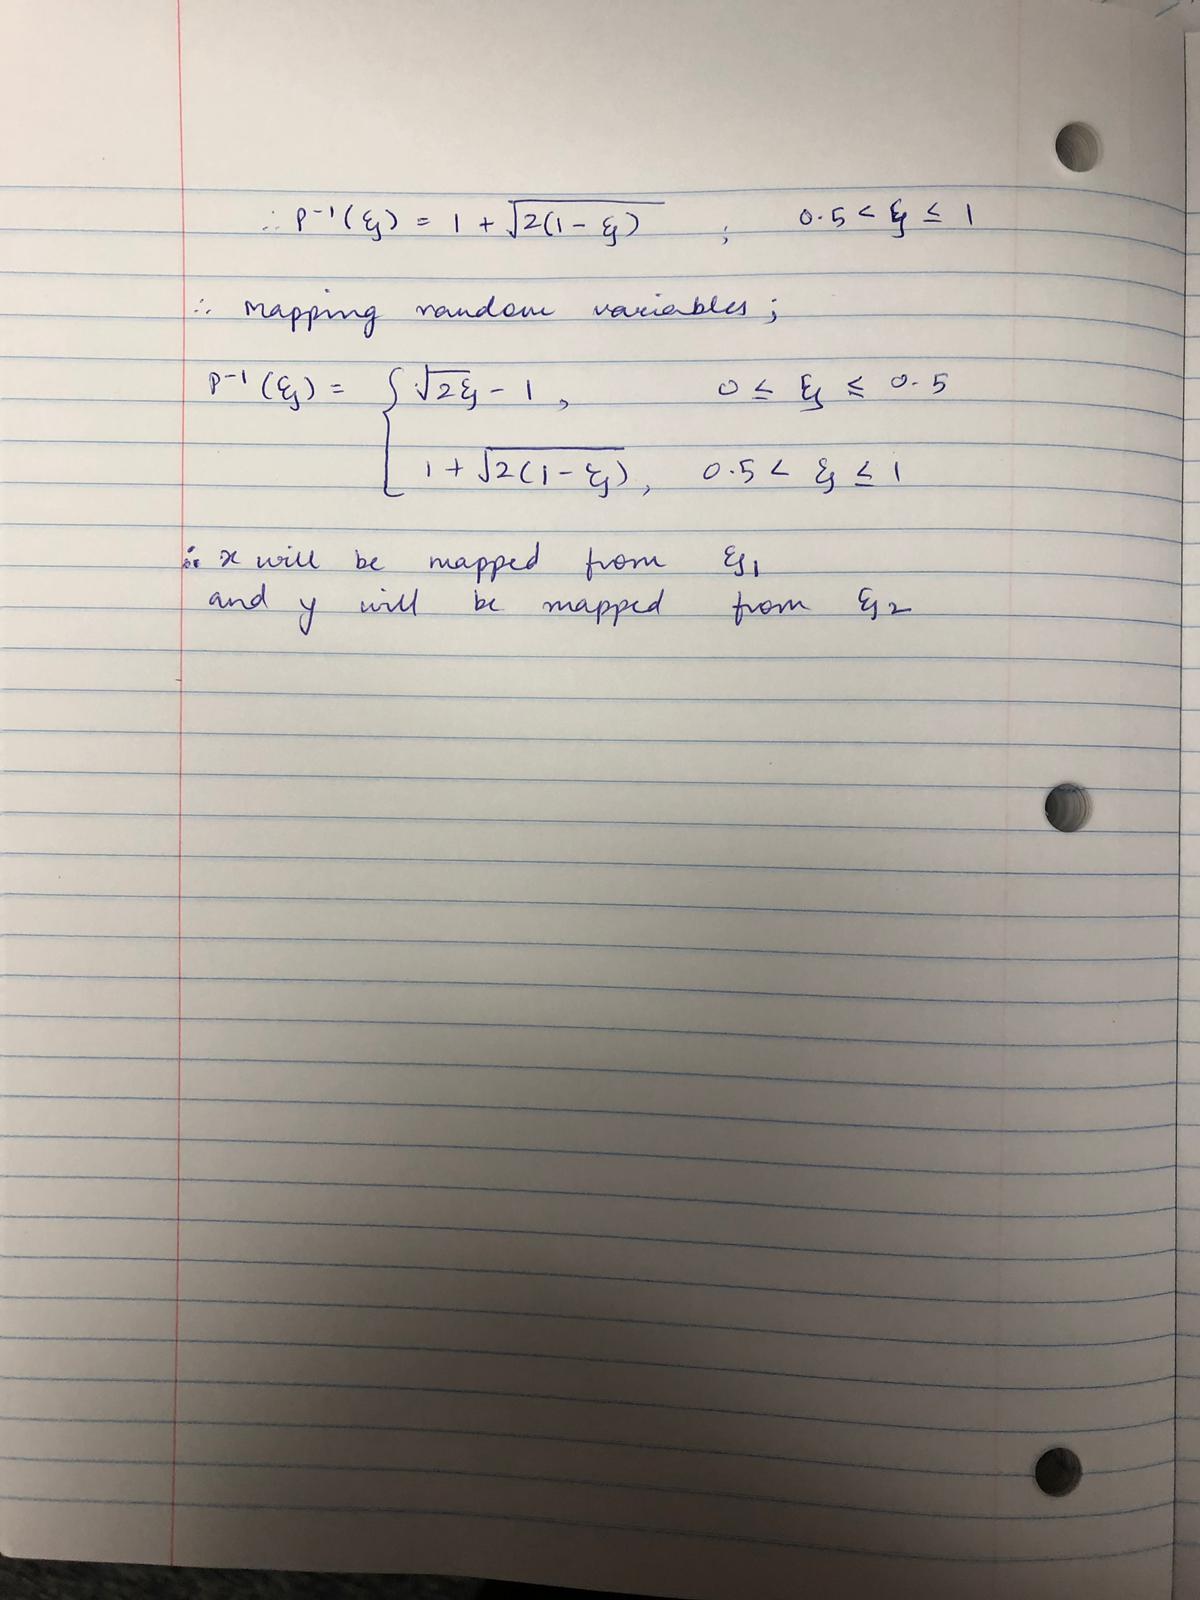 ∴ P⁻¹(ξ) = 1 + √2(1 - ξ) ; 0.5 < ξ ≤ 1
∴ Mapping random variables;
P⁻¹(ξ) = { √2ξ - 1 , 0 ≤ ξ ≤ 0.5
1 + √2(1 - ξ) , 0.5 < ξ ≤ 1
∴ x will be mapped from ξ₁
and y will be mapped from ξ₂